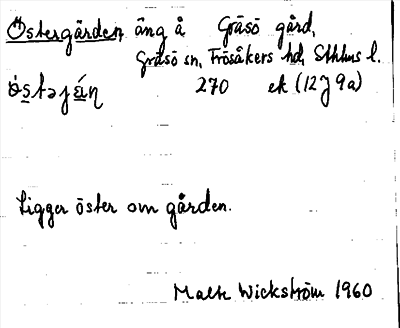 Östergärden äng å Gräsö gård,
Gräsö sn, Frösåkers hd, Sthlms l.
270 ek (12J9a)
Ligger öster om gården.
Malte Wickström 1960